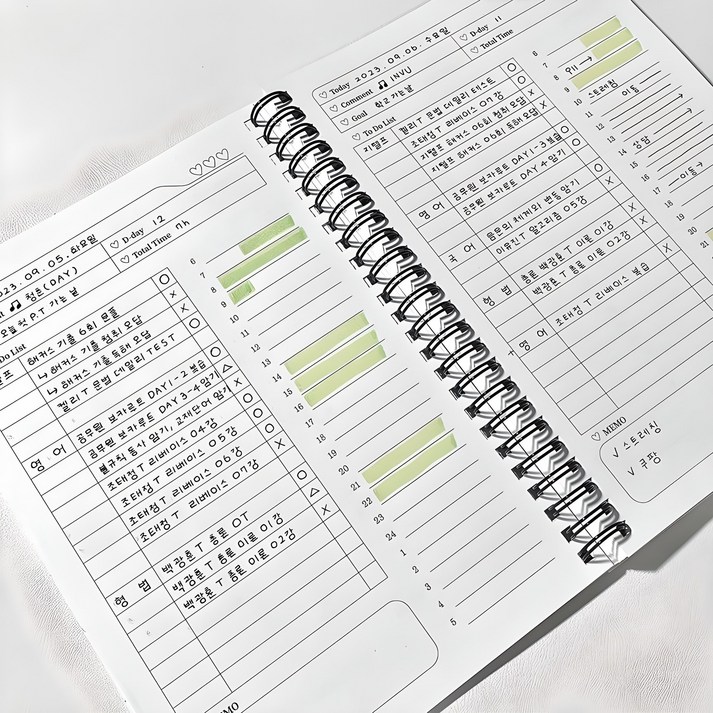 023. 09. 05. 화요일
D-day 12
Total Time 7h
청춘(DAY)
오늘 첫 P.T 가는 날
Do List
해커스 기출 6회 문풀 O
↳ 해커스 기출 청취 오답 X
↳ 해커스 기출 독해 오답 X
켈리 T 문법 데일리 TEST O
영어
공무원 보카루트 DAY 1-2 복습 O
공무원 보카루트 DAY 3-4 암기 △
불규칙 동사 암기, 교재단어 암기 X
조태정 T 리베이스 04강 O
조태정 T 리베이스 05강 O
조태정 T 리베이스 06강 O
조태정 T 리베이스 07강 X
형법
백광훈 T 총론 OT O
백광훈 T 총론 이론 01강 △
백광훈 T 총론 이론 02강 X
MEMO
6
7
8
9
10
11
12
13
14
15
16
17
18
19
20
21
22
23
24
1
2
3
4
5
Today 2023. 09. 06. 수요일
D-day 11
Comment INVU
Total Time
Goal 학교 가는 날
To Do List
지텔프
켈리 T 문법 데일리 테스트 O
조태정 T 리베이스 07강 O
지텔프 해커스 06회 청취 오답 X
지텔프 해커스 06회 독해 오답 X
영어
공무원 보카루트 DAY 1-3 복습 O
공무원 보카루트 DAY 4 암기
국어
음운의 체계와 변동 암기
이유진 T 알고리즘 05강
형법
백광훈 T 총론 이론 02강 X
영어
조태정 T 리베이스 복습 X
MEMO
✓ 스트레칭
✓ 쿠팡
6
7
8 911 →
9
10 스트레칭
11 이동
12
13
14 상담
15
16
17 이동 →
18
19
20
21